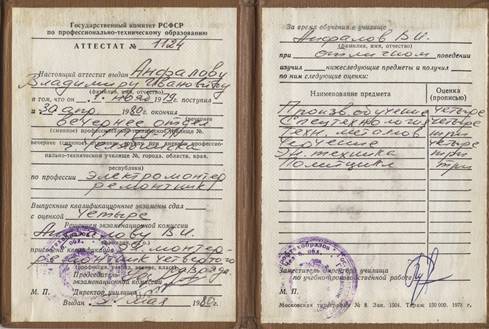 Государственный комитет РСФСР
по профессионально-техническому образованию
АТТЕСТАТ № 1124
Настоящий аттестат выдан Анфалову
Владимиру Ивановичу
(фамилия, имя, отчество)
в том, что он 1 1979 г. поступил
и 30 апр. 1980 г. окончил
вечернее
(сменное) профессионально-техническое училище №
Челябинска
вечернее (сменное) отделение при дневном профессио-
нально-техническом училище №, города, области, края,
республики)
по профессии электромонтер
ремонтник
Выпускные квалификационные экзамены сдал
с оценкой четыре
Решением экзаменационной комиссии
Анфалову В.И.
присвоена квалификация эл. монтер-
ремонтник четвертого
разряда
Председатель
экзаменационной комиссии
Директор училища
М. П.
Выдан 5 мая 1980 г.
За время обучения в училище
Анфалов В.И.
(фамилия, имя, отчество)
при отличном поведении
изучил нижеследующие предметы и получил
по ним следующие оценки:
Наименование предмета
Оценка
(прописью)
Произв. обучение четыре
Спецтехнология четыре
Техн. металов три
Черчение четыре
Эл. техника три
Политэкон. три
Заместитель директора училища
по учебно-производственной работе
М. П.
Московская типография № 8. Зак. 1504. Тираж 150 000. 1978 г.